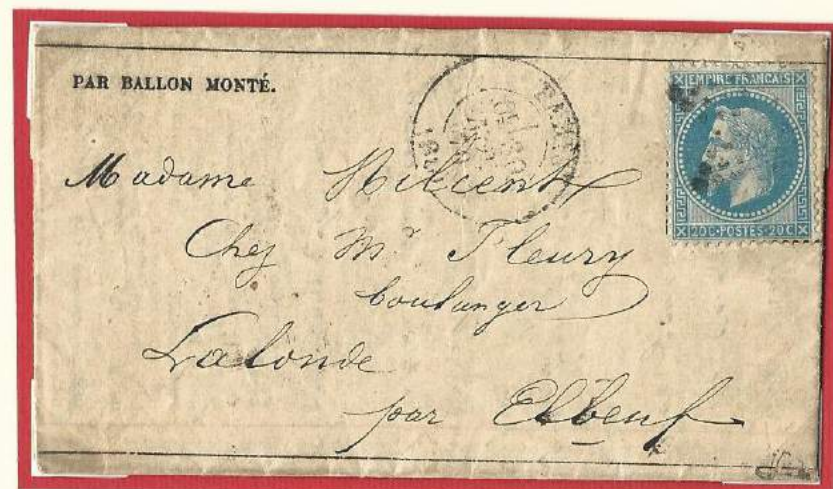 PAR BALLON MONTÉ.
EMPIRE FRANCAIS
20C·POSTES·20C
Madame
Chez Mr Fleury
boulanger
Lalonde
par Elbeuf